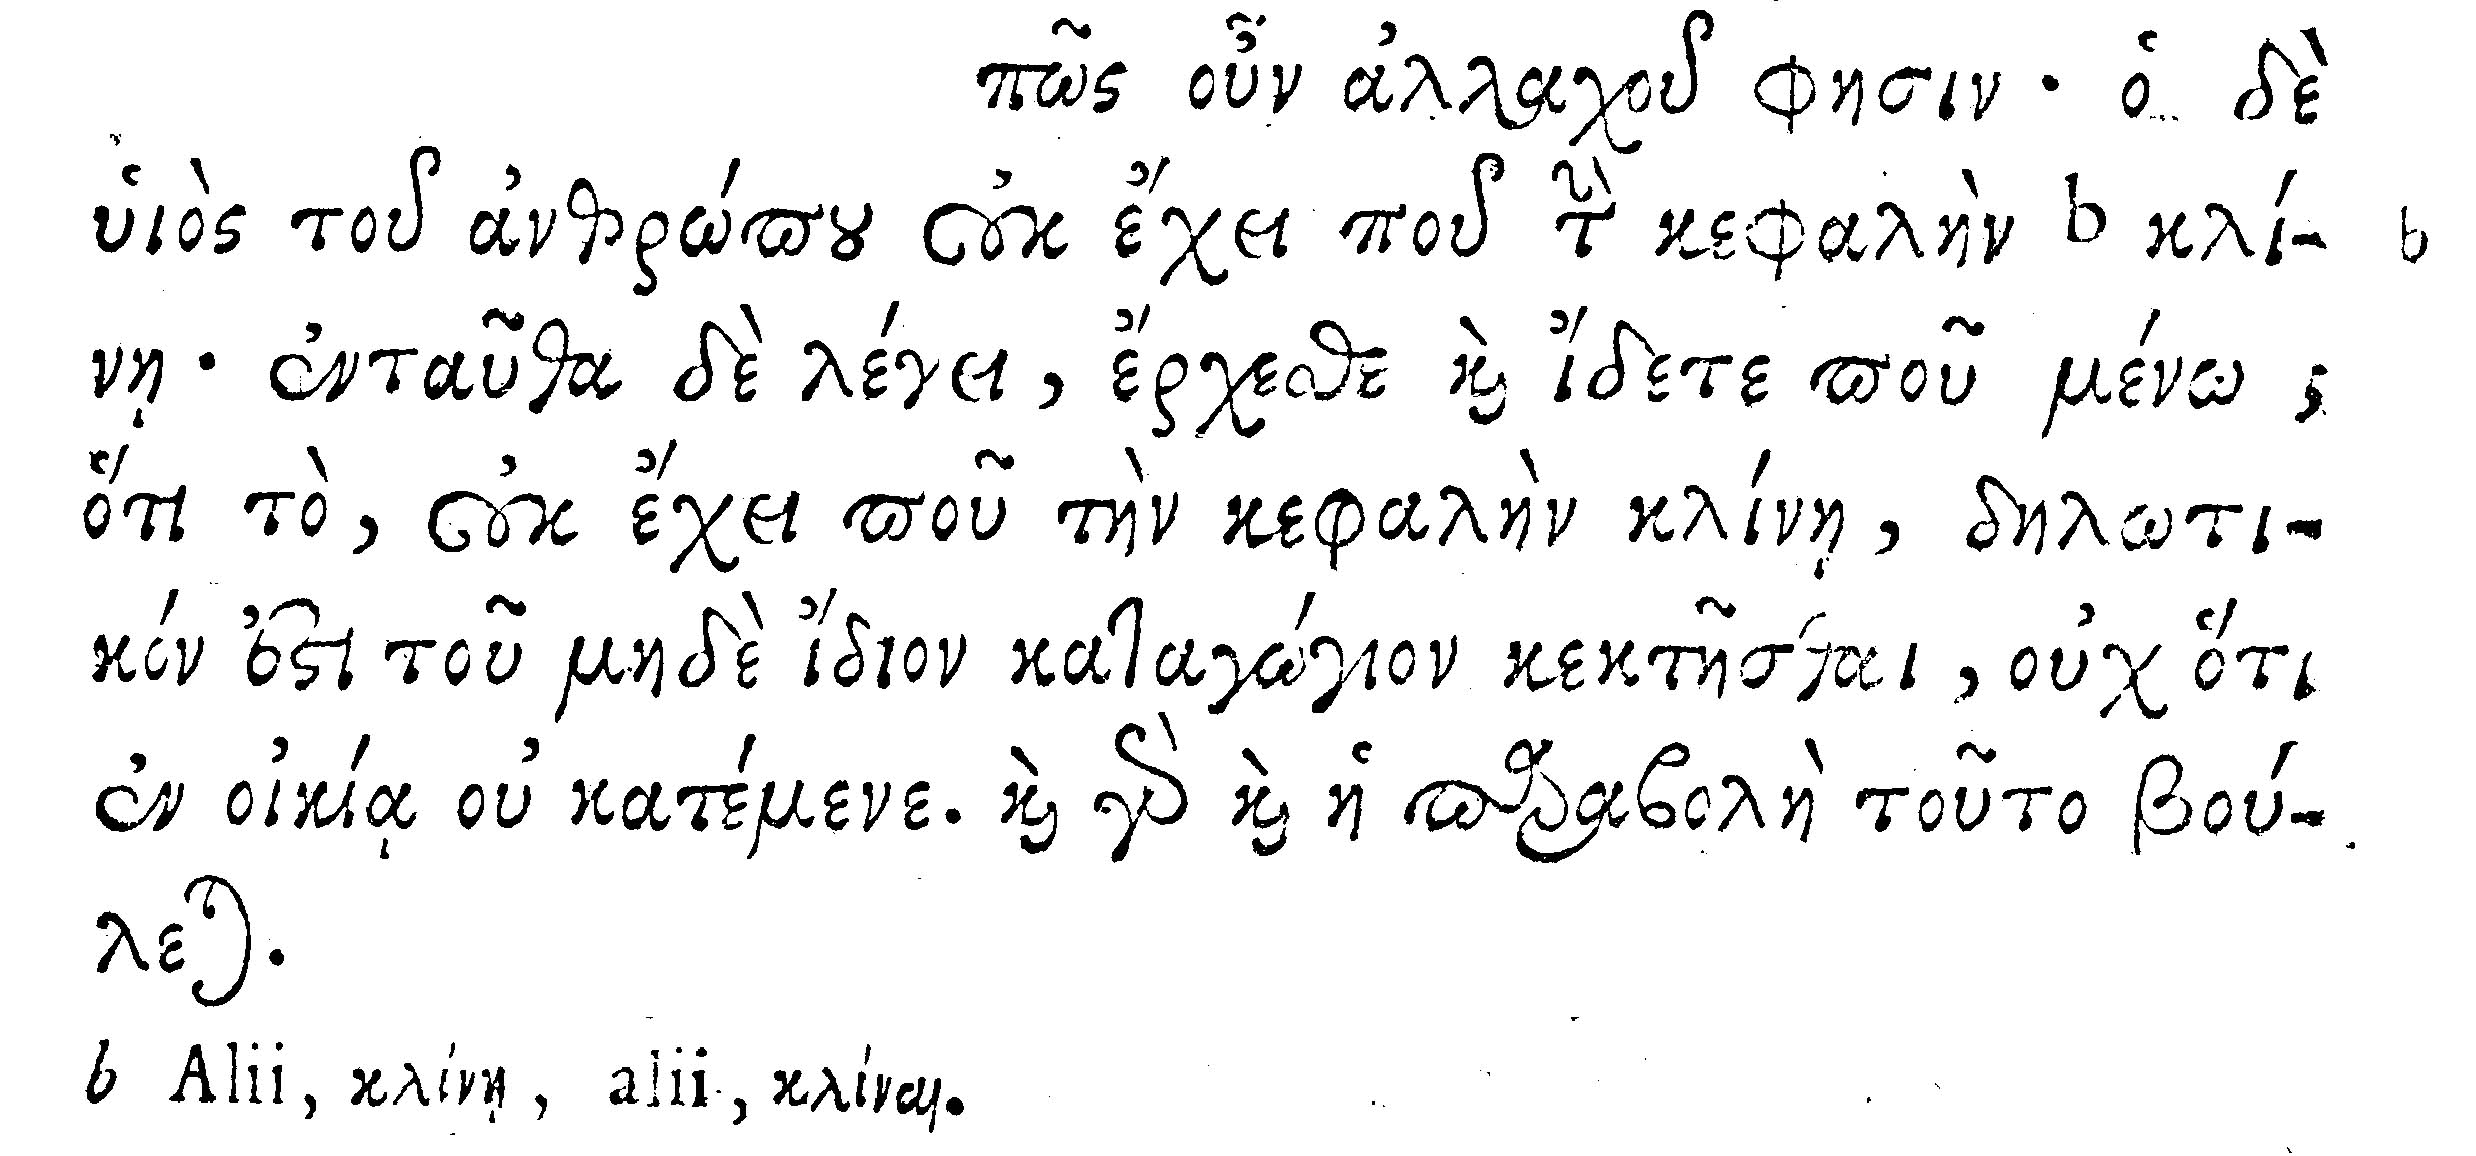 πῶς οὖν ἀλλαχοῦ φησιν· ὁ δὲ
υἱὸς τοῦ ἀνθρώπου οὐκ ἔχει ποῦ τὴν κεφαλὴν b κλί- b
νῃ· ἐνταῦθα δὲ λέγει, ἔρχεσθε καὶ ἴδετε ποῦ μένω;
ὅτι τὸ, οὐκ ἔχει ποῦ τὴν κεφαλὴν κλίνῃ, δηλωτι-
κόν ἐστι τοῦ μηδὲ ἴδιον καταγώγιον κεκτῆσθαι, οὐχ ὅτι
ἐν οἰκίᾳ οὐ κατέμενε. καὶ γὰρ καὶ ἡ παραβολὴ τοῦτο βού-
λεται.
b Alii, κλίνῃ, alii, κλίναι.